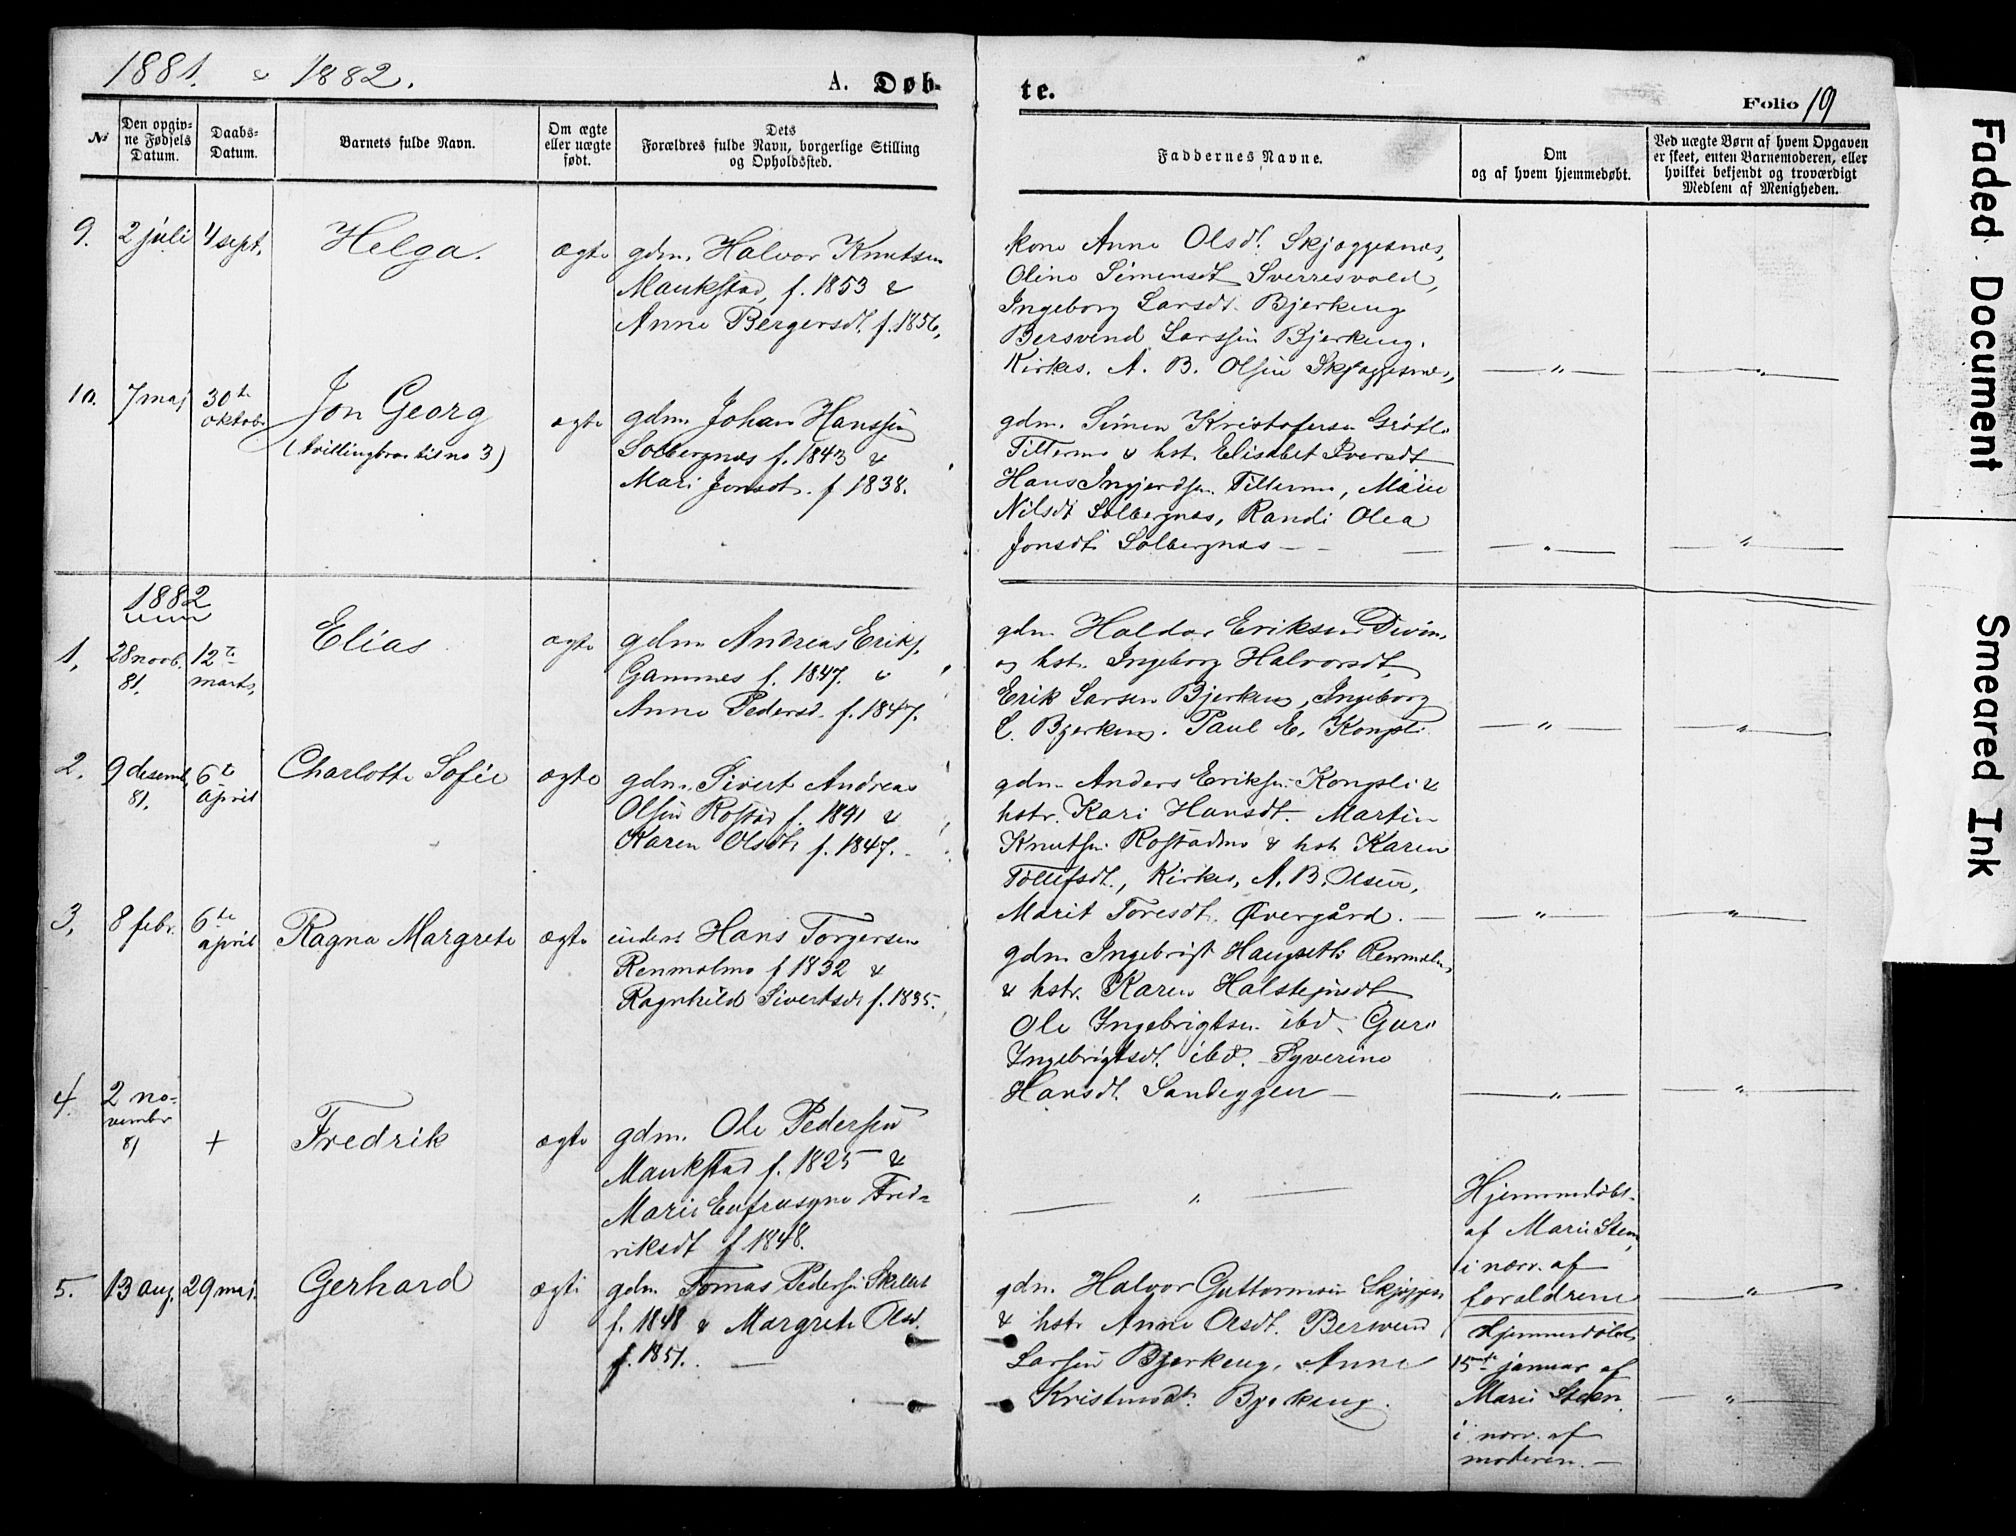 1881. & 1882.
A. Døb-
te.
Folio 19
No
Den opgiv-
ne Fødsels
Datum.
Daabs-
Datum.
Barnets fulde Navn.
Om ægte
eller uægte
født.
Dets
Forældres fulde Navn, borgerlige Stilling
og Opholdssted.
Faddernes Navne.
Om
og af hvem hjemmedøbt.
Ved uægte Børn af hvem Opgaven
er skeet, enten Barnemoderen, eller
hvilket bekjendt og troværdigt
Medlem af Menigheden.
9. 2 juli 4 sept. Helga. ægte
gdm. Halvor Knutsen
Maukstad, f. 1853 &
Anne Bergersdt. f. 1856,
kone Anne Olsdt. Skjæggesnes,
Oline Simensdt Sverresvold,
Ingeborg Larsdt. Bjerkeng
Bersvend Larssen Bjerkeng.
Kirkes. A. B. Olsen Skjæggesnes,
10. 7 maj 30te
oktob. Jon Georg
(tvillingbror til no 3)
ægte
gdm. Johan Hanssen
Solbergnes f. 1843 &
Mari Jonsdt. f 1838.
gdm. Simen Kristofersen Grøtli
Tillermo & hst. Elisabet Iversdt
Hans Ingjerdsen Tillermo, Marie
Nilsdt Solbergnes, Randi Olea
Jonsdt Solbergnes
1882
1. 28 novb.
81. 12te
marts, Elias ægte
gdm Andreas Eriks.
Gamnes f. 1847. &
Anne Pedersd. f. 1847.
gdm Haldor Eriksen
og hst. Ingeborg Halvorsdt,
Erik Larsen Bjerkeng, Ingeborg
L. Bjerkeng. Paul E. Kongsli
2. 9 desemb.
81. 6te
april Charlotte Sofie ægte
gdm. Sivert Andreas
Olsen Rostad f. 1841 &
Karen Olsdt. f. 1847.
gdm. Anders Eriksen Kongsli &
hstr. Kari Hansdt. Martin
Knutsen Rostadmo & hst. Karen
Tollefsdt., Kirkes. A. B. Olsen,
Marit Toresdt. Øvergård.
3. 8 febr. 6te
april Ragna Margrete ægte
inderst Hans Torgersen
Renmælmo f 1832 &
Ragnhild Sivertsdt f. 1835.
gdm. Ingebrigt Haugsetli Renmælm.
& hstr. Karen Halstejnsdt
Ole Ingebrigtsen ibd. Guri
Ingebrigtsdt. ibd. Syverine
Hansdt. Sandeggen
4. 2 no-
vembr
81 + Fredrik ægte
gdm. Ole Pedersen
Maukstad f. 1825 &
Marie Eufrasyne Fred-
riksdt f 1848.
Hjemmedøbt
af Marie Steen,
i nærv. af
forældrene
5. 13 aug. 29 maj. Gerhard ægte
gdm Tomas Pedersen
f. 1848 & Margrete Olsd.
f. 1851.
gdm. Halvor Guttormsen
& hstr Anne Olsdt. Bersvend
Larsen Bjerkeng, Anne
Kristensdt. Bjerkeng.
Hjemmedøbt
15nde januar af
Marie Steen
i nærv. af
moderen.
Faded Document
Smeared Ink